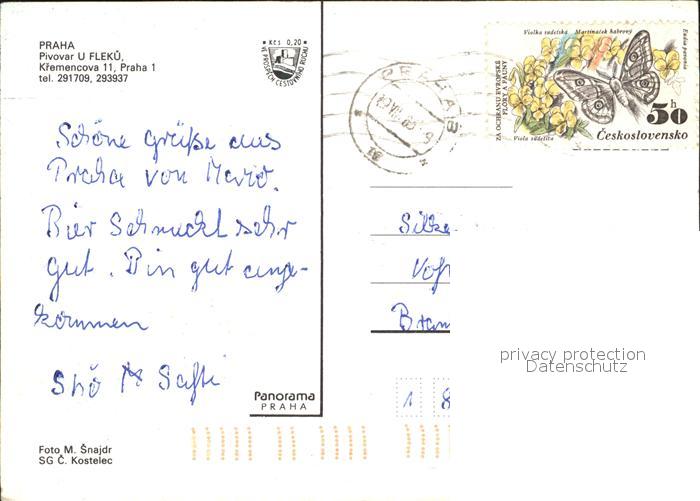 PRAHA
Pivovar U FLEKŮ,
Křemencova 11, Praha 1
tel. 291709, 293937
Kčs 0,20
VE PROSPĚCH CESTOVNÍHO RUCHU
PRAHA 8
Violka sudetská Martináček habrový
Eudia pavonia
ZA OCHRANU EVROPSKÉ
FLÓRY A FAUNY
Viola sudetica
50 h
Československo
Schöne grüße aus
Praha von Mario.
Bier Schmeckt sehr
gut. Bin gut ange-
kommen
Silke
Vog
Bram
1 8
privacy protection
Datenschutz
Panorama
PRAHA
Foto M. Šnajdr
SG Č. Kostelec